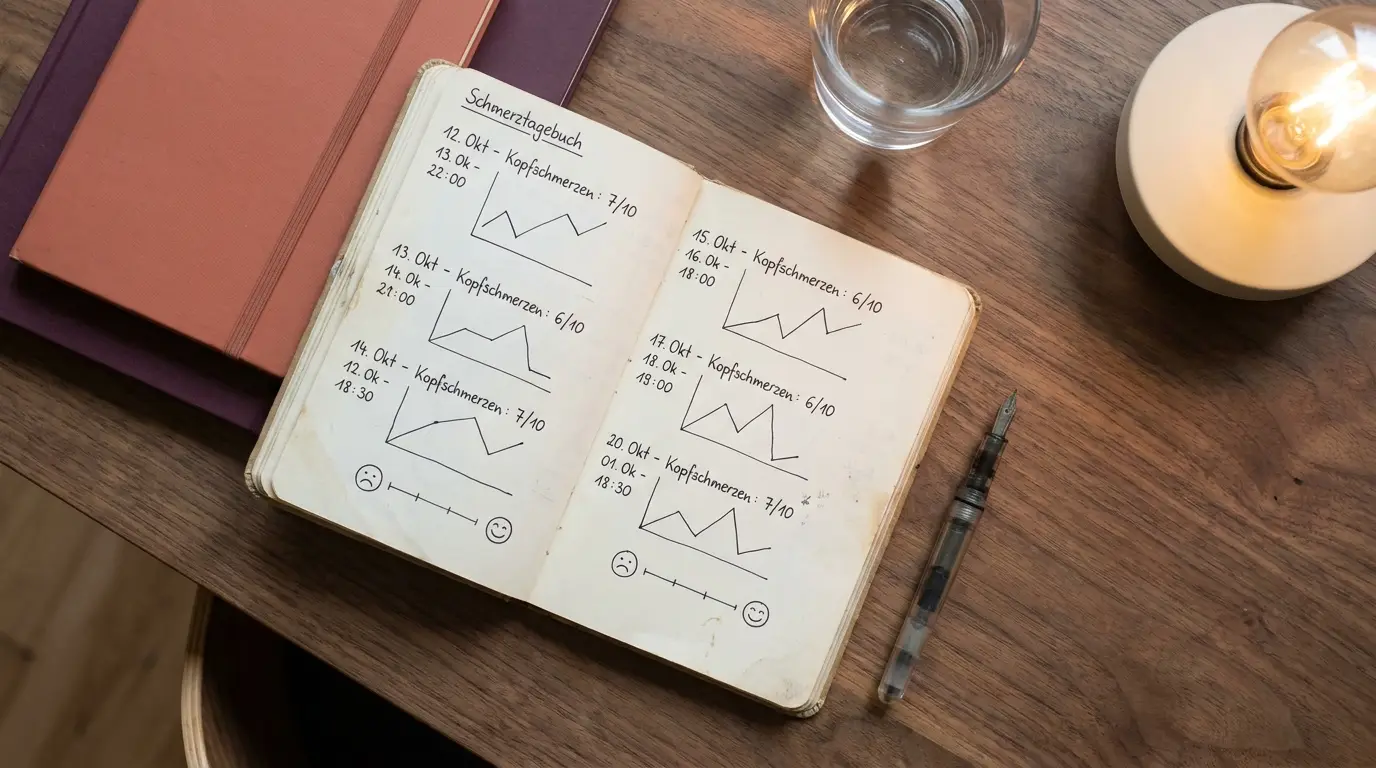 Schmerztagebuch
12. Okt - Kopfschmerzen: 7/10
13. Ok -
22:00
13. Okt - Kopfschmerzen: 6/10
14. Ok -
21:00
14. Okt - Kopfschmerzen: 7/10
12. Ok -
18:30
15. Okt - Kopfschmerzen: 6/10
16. Ok -
18:00
17. Okt - Kopfschmerzen: 6/10
18. Ok -
19:00
20. Okt - Kopfschmerzen: 7/10
01. Ok -
18:30